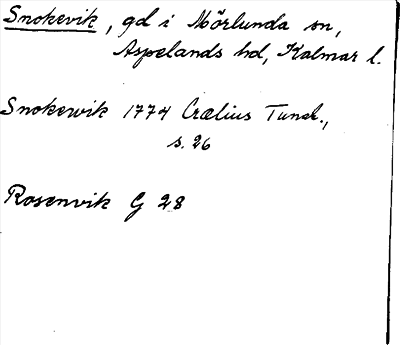 Snokevik, gd i Mörlunda sn,
Aspelands hd, Kalmar l.
Snokewik 1774 Crælius Tunal.,
s. 26
Rosenvik G 28